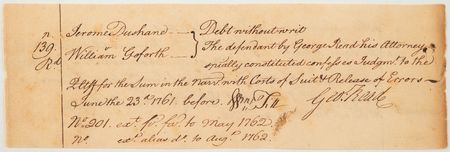 n. Jerome Dushand — Debt without writ
139 William Goforth — The defendant by George Read his Attorney
Rd specially constituted confess es Judgmt. to the
Pltiff for the Sum in the Narr. with Costs of Suit & Release of Errors —
June the 23d. 1761. before Wm. Till Geo: Read.
No. 201. exn. fi. fa. to May 1762
No. exn. alias do. to Augt. 1762.